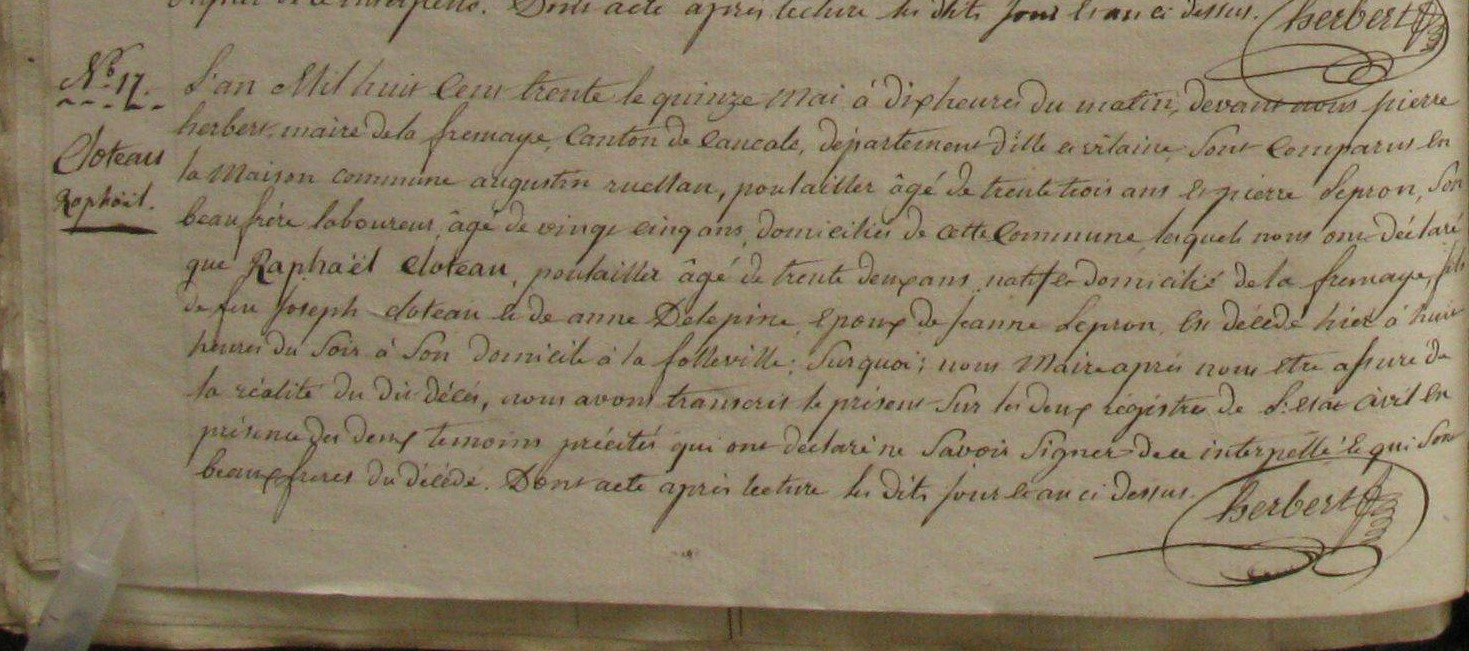 Dont acte après lecture les dits jour et an ci dessus. herbert
No. 17. L'an Mil huit Cent trente le quinze mai à dix heures du matin, devant nous pierre
herbert, maire de la fresnaye, Canton de Cancale, département d'ille et vilaine, Sont Comparus en
Cloteau la Maison commune augustin ruellan, poulailler âgé de trente trois ans et pierre Lepron, Son
Raphaël. beau frère laboureur, âgé de vingt cinq ans, domiciliés de cette Commune, lesquels nous ont déclaré
que Raphaël Cloteau, poulailler âgé de trente deux ans, natif et domicilié de la fresnaye, fils
de feu Joseph cloteau et de anne Delepine, Epoux de Jeanne Lepron, est décédé hier à huit
heures du Soir à Son domicile à la folleville; Surquoi; nous Maire après nous etre assuré de
la réalité du dit décès, nous avons transcris le présent Sur les deux régistres de L'etat civil en
présence des deux temoins précités qui ont declaré ne Savoir Signer de ce interpellé et qui Sont
beaux freres du décédé. Dont acte après lecture les dits jour et an ci dessus.
herbert